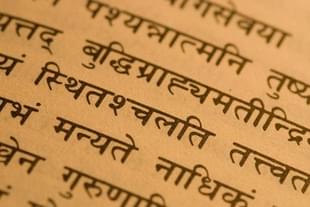 योगसेवया
पश्यन्नात्मनि तुष्य
बुद्धिग्राह्यमतीन्द्रि
स्थितश्चलति तत्त्वत
मन्यते नाधिकं
गुरुणा